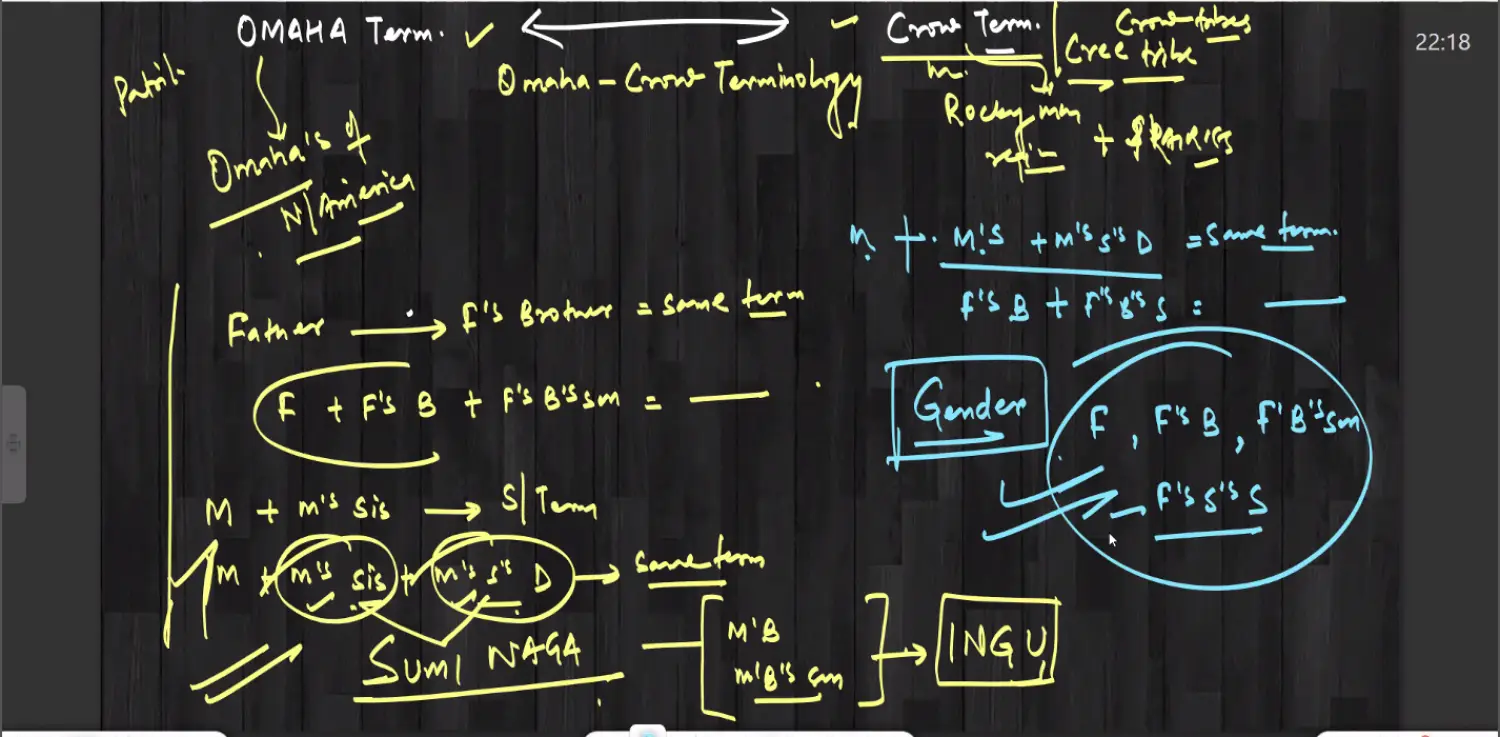 OMAHA Term. ✓ ⟷ ✓ Crow Term.
Crow tribes
Cree tribe
22:18
Patril.
Omaha - Crow Terminology
m.
Rocky mnn
regin + PRAIRIES
Omaha's of
N/America
M + M's S + M's S's D = Same term.
F's B + F's B's S =
Father → F's Brother = same term
F + F's B + F's B's sm =
Gender
F, F's B, F'B's sm
- F's S's S
M + m's sis → S/Term
M + m's sis + m's s's D → same term
SUMI NAGA
M'B
m'B's sm
INGU